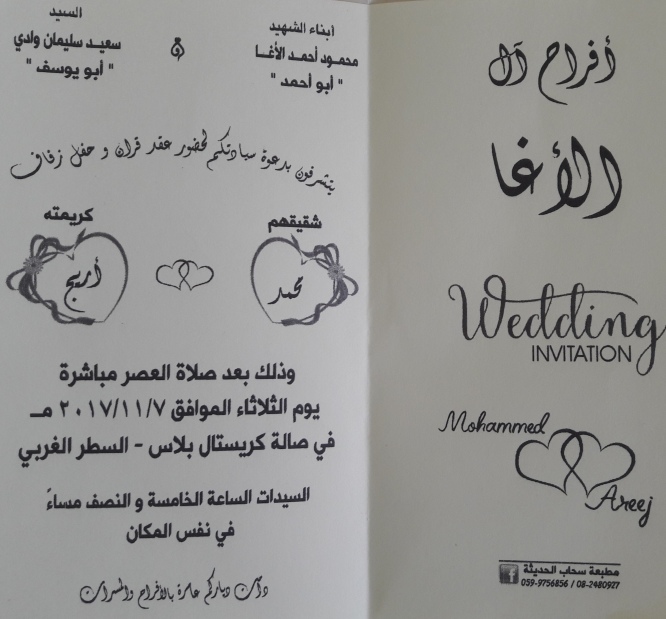 أفراح آل
الأغا
Wedding
INVITATION
Mohammed
Areej
مطبعة سحاب الحديثة
059-9756856 / 08-2480927
f
أبناء الشهيد
محمود أحمد الأغا
" أبو أحمد "
و
السيد
سعيد سليمان وادي
" أبو يوسف "
يتشرفون بدعوة سيادتكم لحضور عقد قران و حفل زفاف
شقيقهم
محمد
كريمته
أريج
وذلك بعد صلاة العصر مباشرة
يوم الثلاثاء الموافق ٢٠١٧/١١/٧ مـ
في صالة كريستال بلاس - السطر الغربي
السيدات الساعة الخامسة و النصف مساءً
في نفس المكان
دامت دياركم عامرة بالأفراح والمسرات